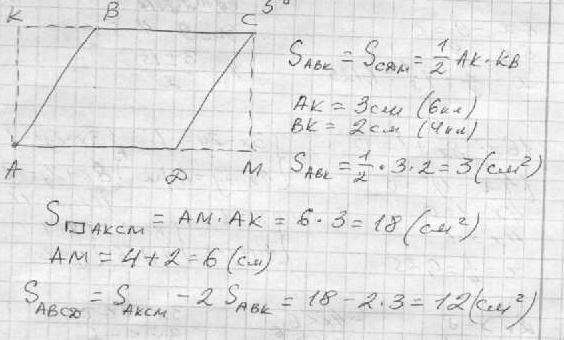 K B C
A D M
S ABK = S CDM = 1/2 AK · KB
AK = 3 см (6 кл)
BK = 2 см (4 кл)
S ABK = 1/2 · 3 · 2 = 3 (см²)
S □ AKCM = AM · AK = 6 · 3 = 18 (см²)
AM = 4 + 2 = 6 (см)
S ABCD = S AKCM − 2 S ABK = 18 − 2 · 3 = 12 (см²)